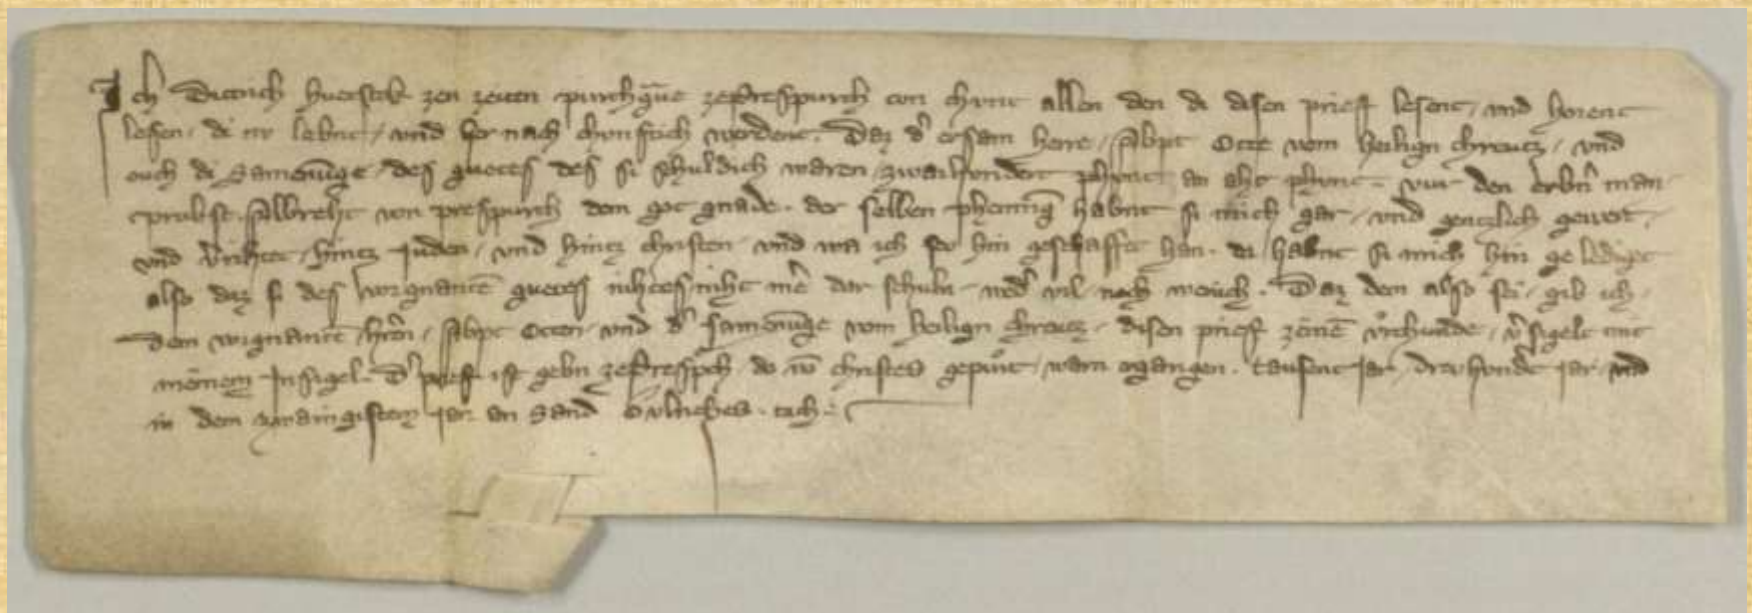 Ich Dietrich zen zeiten purchgᵃue ze Prespurch tun chunt allen den di disen prief lesent, und horent
lesen, di nv lebnt, und her nach chunftich werdent. Daz dˀ ersam herre, Abpt Otte vom heilign chreutz, und
ouch di Samenūge, des guetes des si schuldich waren, zwaihundert phunt an aht phunt, vur den erbnˀ man
probst Albreht von prespurch dem got gnade. der selben phennīg habnt si mich gar, und gentzlich gewert,
und vˀrihtet, hintz Juden, und hintz christen, und wa ich se hin geschaffet han. da habnt si mich hin gelediget
also daz si des guetes nihtes niht mē dar schuln, nodˀ vil noch wench. Daz dem also sei, gib ich,
dem hˀrn, Abpt Otten, und dˀ samenūge vom heilign chreutz, disen prief zeinē vrchunde, vˀsigelt mit
meinem Insigel. Dˀ prief ist gebn ze Prespᵘch, do võ christes gepurt, warn ergangen. tausent jar, drevhundˀt jar, und
in dem zwaingistem jar an Sand Vlriches. tach.